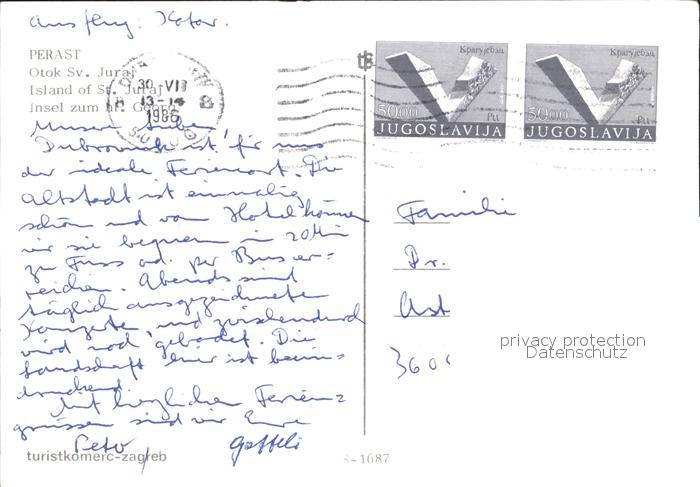 Ausflug: Kotor.
PERAST
Otok Sv. Juraj
Island of St. Juraj
Insel zum hl. Georg
30. VII
13-14
1986
8
Крагујевац
50.00
PTT
JUGOSLAVIJA
Крагујевац
50.00
PTT
JUGOSLAVIJA
Unsere Lieben!
Dubrovnik ist für uns
der ideale Ferienort. Die
Altstadt ist einmalig
schön und vom Hotel können
wir sie bequem in 20 Min
zu Fuss od. per Bus er=
reichen. Abends sind
täglich ausgezeichnete
Konzerte, und zwischendurch
wird noch gebadet. Die
Landschaft hier ist beein=
druckend.
Mit herzlichen Ferien=
grüssen sind wir Eure
Familie
Dr.
Ast
3600
privacy protection
Datenschutz
turistkomerc-zagreb
S-1687